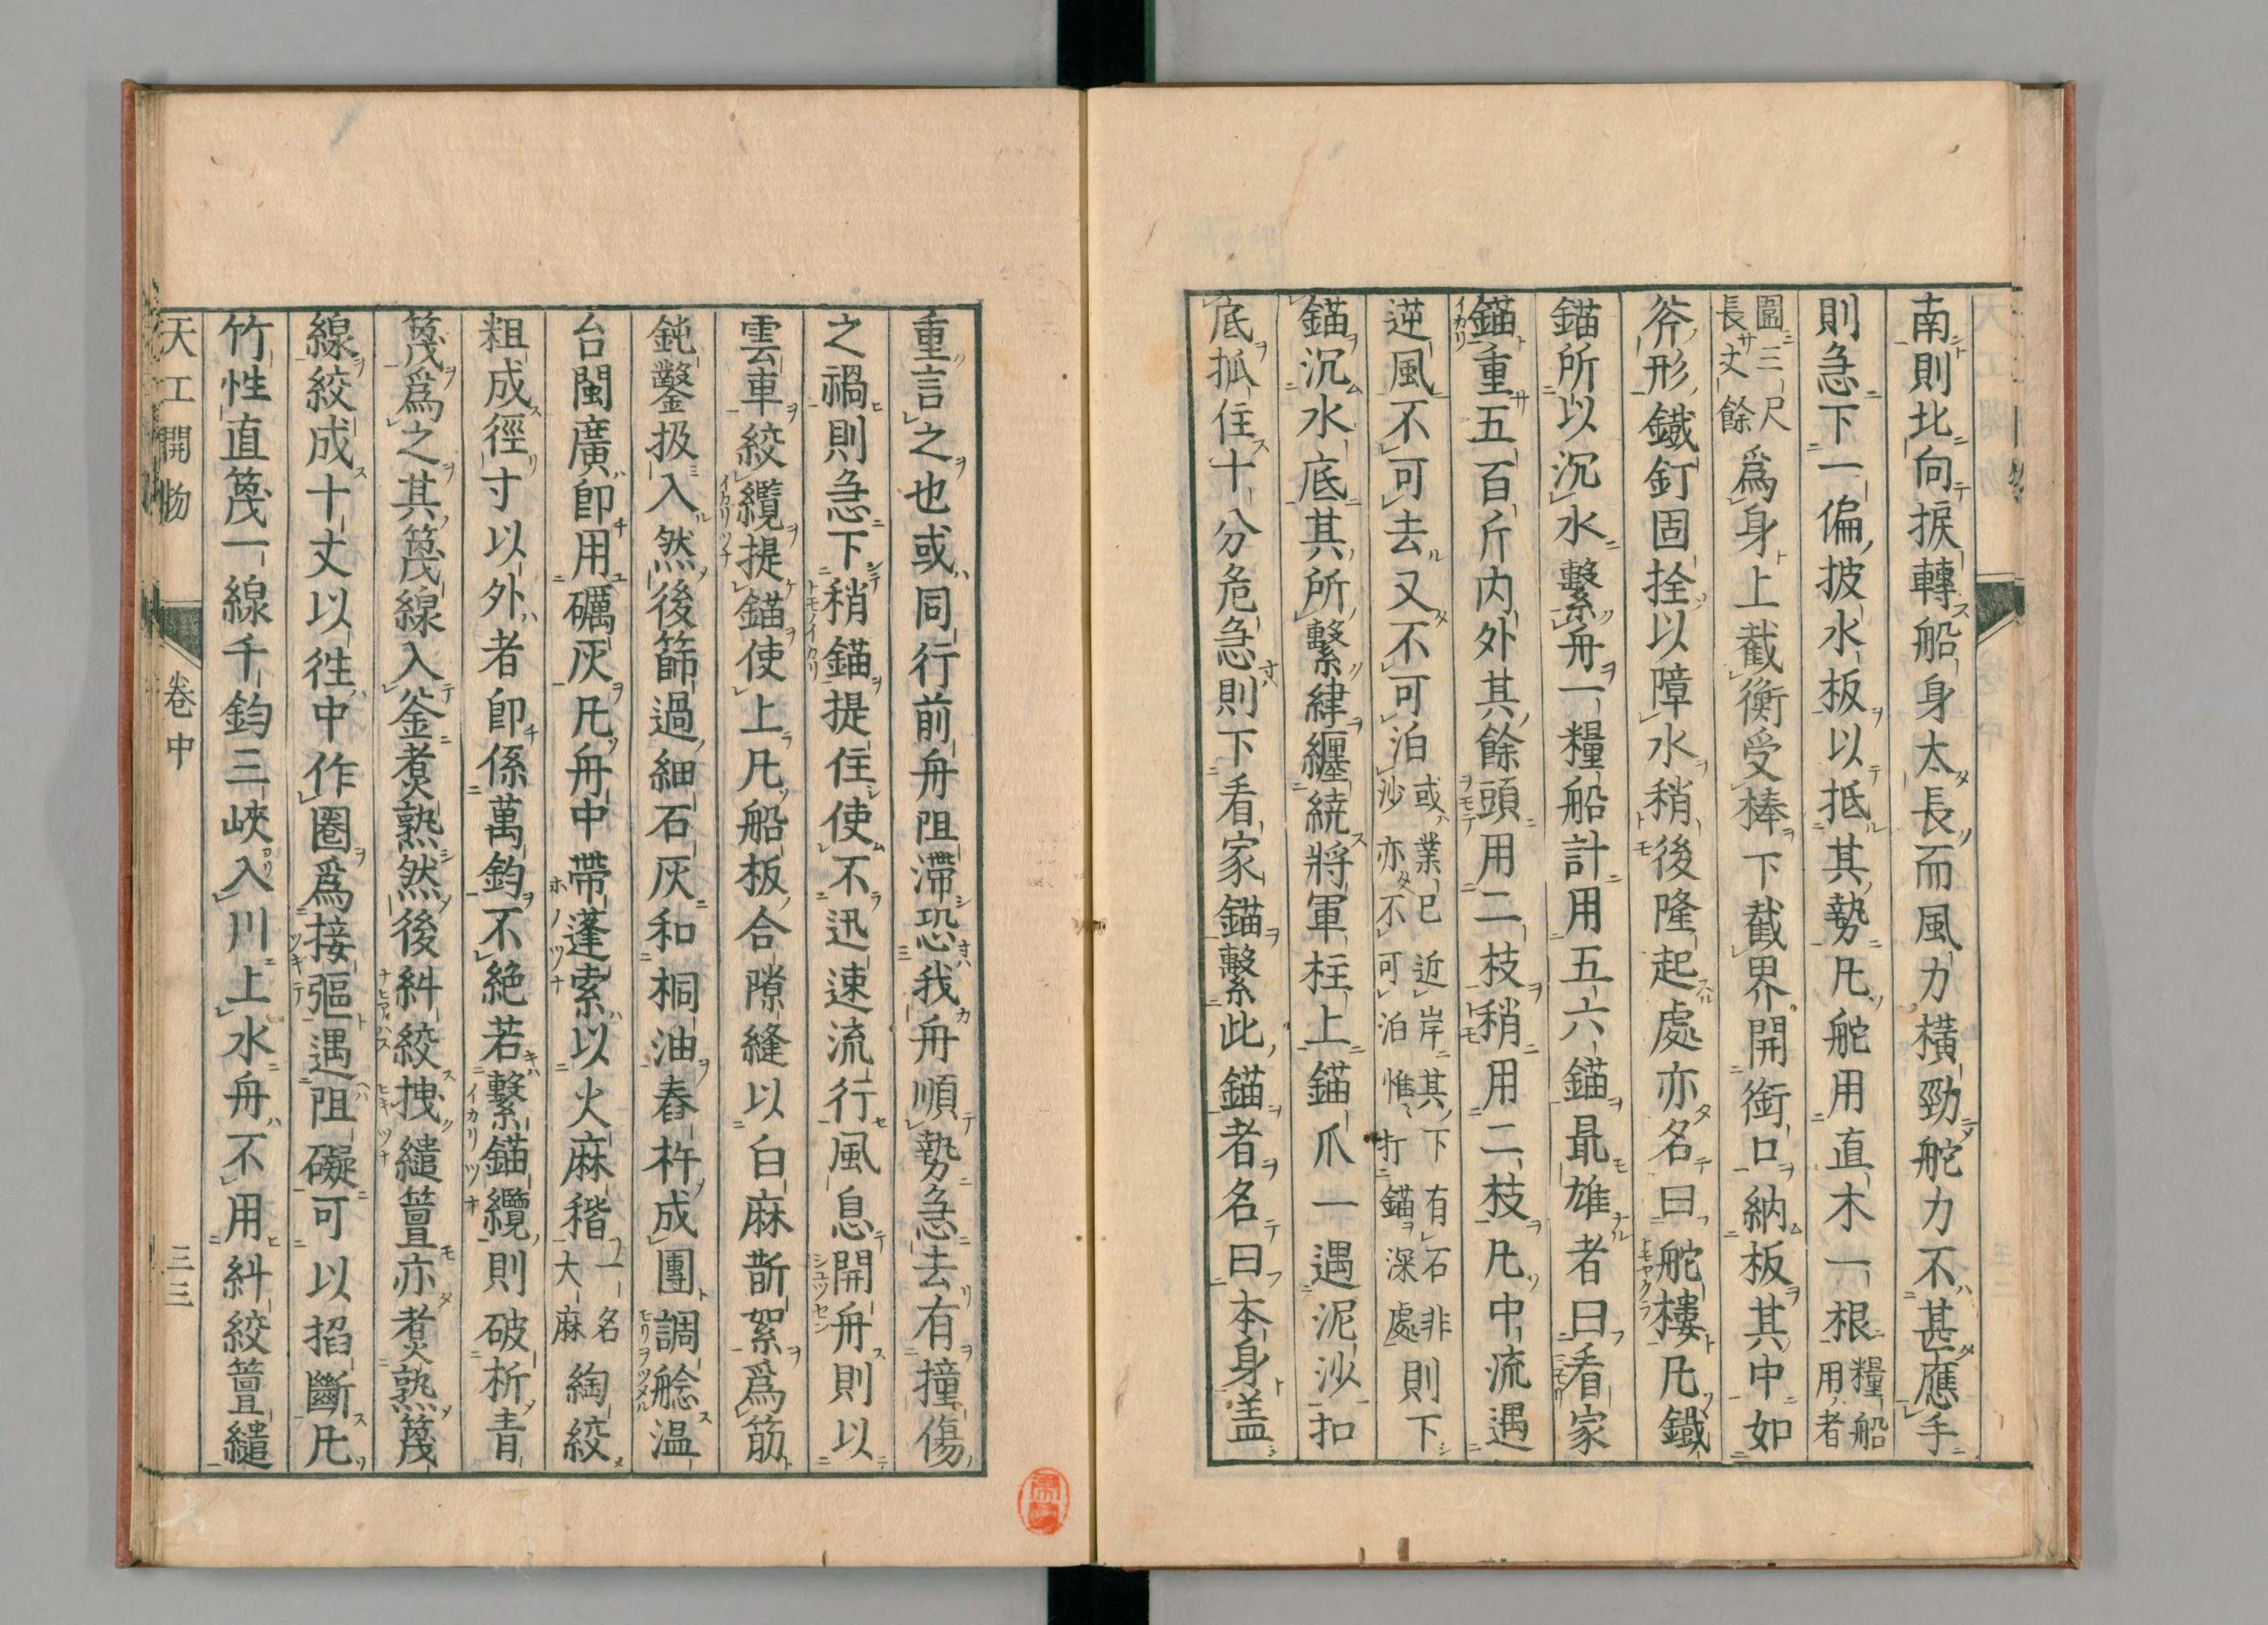 南則北向捩轉船身太長而風力橫勁舵力不甚應手
則急下一偏披水板以抵其勢凡舵用直木一根糧船用者
圍三尺長丈餘爲身上截衡受棒下截界開銜口納板其中如
斧形鐵釘固拴以障水稍後隆起處亦名曰舵樓凡鐵
錨所以沉水繫舟一糧船計用五六錨最雄者曰看家
錨重五百斤内外其餘頭用二枝稍用二枝凡中流遇
逆風不可去又不可泊或業已近岸其下有石非沙亦不可泊惟打錨深處則下
錨沉水底其所繫𦄂纏繞將軍柱上錨爪一遇泥沙扣
底抓住十分危急則下看家錨繫此錨者名曰本身盖
重言之也或同行前舟阻滯恐我舟順勢急去有撞傷
之禍則急下稍錨提住使不迅速流行風息開舟則以
雲車絞纜提錨使上凡船板合隙縫以白麻斮絮爲筋
鈍鑿扱入然後篩過細石灰和桐油舂杵成團調艌温
台閩廣卽用礪灰凡舟中帶蓬索以火麻稭一名大麻綯絞
粗成徑寸以外者卽係萬鈞不絶若繫錨纜則破析青
篾爲之其篾線入釜煮熟然後糾絞拽繾簹亦煮熟篾
線絞成十丈以徃中作圈爲接彄遇阻礙可以掐斷凡
竹性直篾一線千鈞三峽入川上水舟不用糾絞簹繾
天工開物
卷中
三三